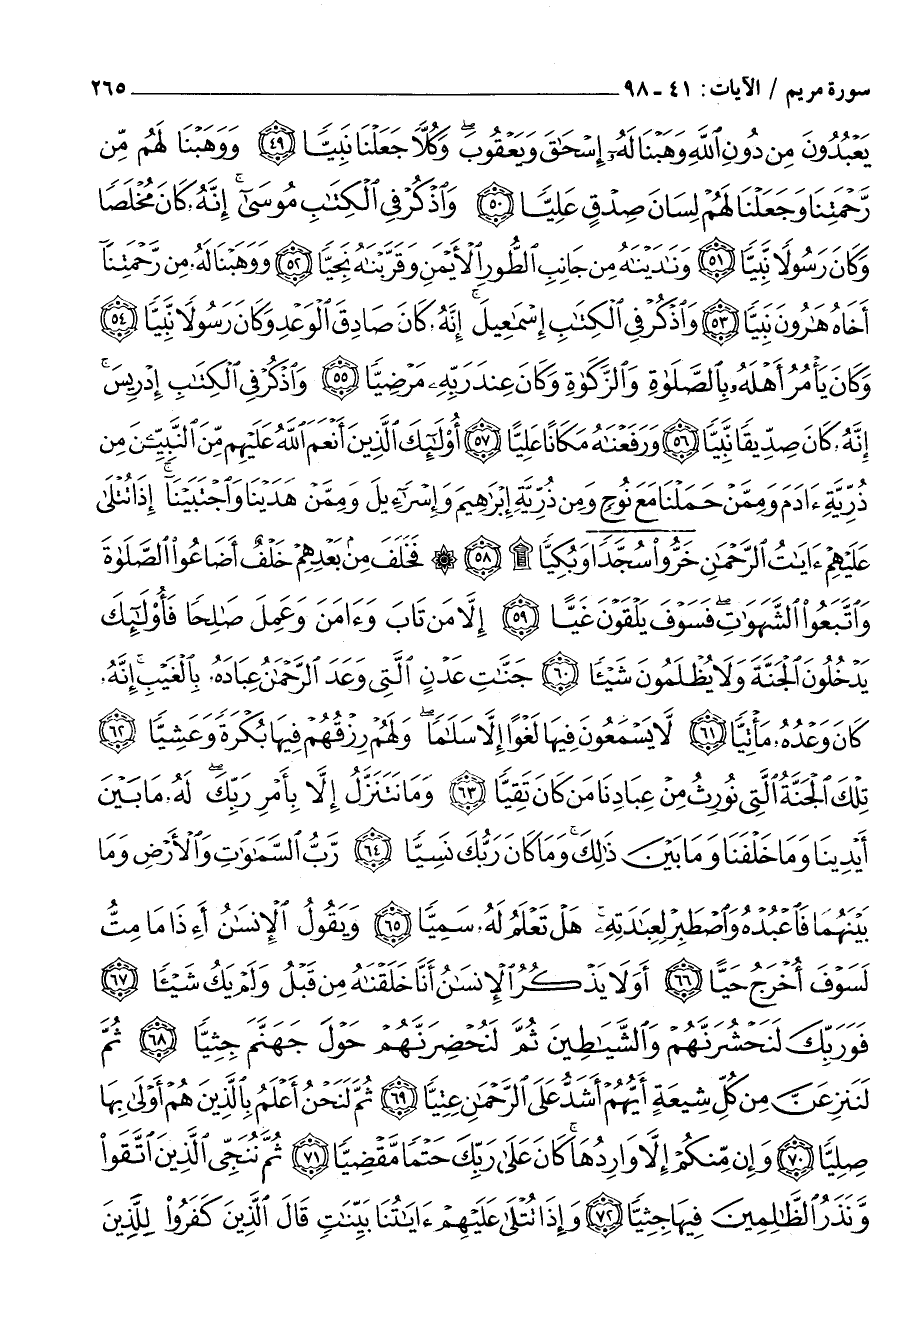 سورة مريم / الآيات: ٤١ - ٩٨ ٢٦٥
يَعْبُدُونَ مِن دُونِ ٱللَّهِ وَهَبْنَا لَهُۥٓ إِسْحَٰقَ وَيَعْقُوبَ ۖ وَكُلًّا جَعَلْنَا نَبِيًّا ﴿٤٩﴾ وَوَهَبْنَا لَهُم مِّن
رَّحْمَتِنَا وَجَعَلْنَا لَهُمْ لِسَانَ صِدْقٍ عَلِيًّا ﴿٥٠﴾ وَٱذْكُرْ فِى ٱلْكِتَٰبِ مُوسَىٰٓ ۚ إِنَّهُۥ كَانَ مُخْلَصًا
وَكَانَ رَسُولًا نَّبِيًّا ﴿٥١﴾ وَنَٰدَيْنَٰهُ مِن جَانِبِ ٱلطُّورِ ٱلْأَيْمَنِ وَقَرَّبْنَٰهُ نَجِيًّا ﴿٥٢﴾ وَوَهَبْنَا لَهُۥ مِن رَّحْمَتِنَآ
أَخَاهُ هَٰرُونَ نَبِيًّا ﴿٥٣﴾ وَٱذْكُرْ فِى ٱلْكِتَٰبِ إِسْمَٰعِيلَ ۚ إِنَّهُۥ كَانَ صَادِقَ ٱلْوَعْدِ وَكَانَ رَسُولًا نَّبِيًّا ﴿٥٤﴾
وَكَانَ يَأْمُرُ أَهْلَهُۥ بِٱلصَّلَوٰةِ وَٱلزَّكَوٰةِ وَكَانَ عِندَ رَبِّهِۦ مَرْضِيًّا ﴿٥٥﴾ وَٱذْكُرْ فِى ٱلْكِتَٰبِ إِدْرِيسَ ۚ
إِنَّهُۥ كَانَ صِدِّيقًا نَّبِيًّا ﴿٥٦﴾ وَرَفَعْنَٰهُ مَكَانًا عَلِيًّا ﴿٥٧﴾ أُو۟لَٰٓئِكَ ٱلَّذِينَ أَنْعَمَ ٱللَّهُ عَلَيْهِم مِّنَ ٱلنَّبِيِّۦنَ مِن
ذُرِّيَّةِ ءَادَمَ وَمِمَّنْ حَمَلْنَا مَعَ نُوحٍ وَمِن ذُرِّيَّةِ إِبْرَٰهِيمَ وَإِسْرَٰٓءِيلَ وَمِمَّنْ هَدَيْنَا وَٱجْتَبَيْنَآ ۚ إِذَا تُتْلَىٰ
عَلَيْهِمْ ءَايَٰتُ ٱلرَّحْمَٰنِ خَرُّوا۟ سُجَّدًا وَبُكِيًّا ۩ ﴿٥٨﴾ ۞ فَخَلَفَ مِنۢ بَعْدِهِمْ خَلْفٌ أَضَاعُوا۟ ٱلصَّلَوٰةَ
وَٱتَّبَعُوا۟ ٱلشَّهَوَٰتِ ۖ فَسَوْفَ يَلْقَوْنَ غَيًّا ﴿٥٩﴾ إِلَّا مَن تَابَ وَءَامَنَ وَعَمِلَ صَٰلِحًا فَأُو۟لَٰٓئِكَ
يَدْخُلُونَ ٱلْجَنَّةَ وَلَا يُظْلَمُونَ شَيْـًٔا ﴿٦٠﴾ جَنَّٰتِ عَدْنٍ ٱلَّتِى وَعَدَ ٱلرَّحْمَٰنُ عِبَادَهُۥ بِٱلْغَيْبِ ۚ إِنَّهُۥ
كَانَ وَعْدُهُۥ مَأْتِيًّا ﴿٦١﴾ لَّا يَسْمَعُونَ فِيهَا لَغْوًا إِلَّا سَلَٰمًا ۖ وَلَهُمْ رِزْقُهُمْ فِيهَا بُكْرَةً وَعَشِيًّا ﴿٦٢﴾
تِلْكَ ٱلْجَنَّةُ ٱلَّتِى نُورِثُ مِنْ عِبَادِنَا مَن كَانَ تَقِيًّا ﴿٦٣﴾ وَمَا نَتَنَزَّلُ إِلَّا بِأَمْرِ رَبِّكَ ۖ لَهُۥ مَا بَيْنَ
أَيْدِينَا وَمَا خَلْفَنَا وَمَا بَيْنَ ذَٰلِكَ ۚ وَمَا كَانَ رَبُّكَ نَسِيًّا ﴿٦٤﴾ رَّبُّ ٱلسَّمَٰوَٰتِ وَٱلْأَرْضِ وَمَا
بَيْنَهُمَا فَٱعْبُدْهُ وَٱصْطَبِرْ لِعِبَٰدَتِهِۦ ۚ هَلْ تَعْلَمُ لَهُۥ سَمِيًّا ﴿٦٥﴾ وَيَقُولُ ٱلْإِنسَٰنُ أَءِذَا مَا مِتُّ
لَسَوْفَ أُخْرَجُ حَيًّا ﴿٦٦﴾ أَوَلَا يَذْكُرُ ٱلْإِنسَٰنُ أَنَّا خَلَقْنَٰهُ مِن قَبْلُ وَلَمْ يَكُ شَيْـًٔا ﴿٦٧﴾
فَوَرَبِّكَ لَنَحْشُرَنَّهُمْ وَٱلشَّيَٰطِينَ ثُمَّ لَنُحْضِرَنَّهُمْ حَوْلَ جَهَنَّمَ جِثِيًّا ﴿٦٨﴾ ثُمَّ
لَنَنزِعَنَّ مِن كُلِّ شِيعَةٍ أَيُّهُمْ أَشَدُّ عَلَى ٱلرَّحْمَٰنِ عِتِيًّا ﴿٦٩﴾ ثُمَّ لَنَحْنُ أَعْلَمُ بِٱلَّذِينَ هُمْ أَوْلَىٰ بِهَا
صِلِيًّا ﴿٧٠﴾ وَإِن مِّنكُمْ إِلَّا وَارِدُهَا ۚ كَانَ عَلَىٰ رَبِّكَ حَتْمًا مَّقْضِيًّا ﴿٧١﴾ ثُمَّ نُنَجِّى ٱلَّذِينَ ٱتَّقَوا۟
وَّنَذَرُ ٱلظَّٰلِمِينَ فِيهَا جِثِيًّا ﴿٧٢﴾ وَإِذَا تُتْلَىٰ عَلَيْهِمْ ءَايَٰتُنَا بَيِّنَٰتٍ قَالَ ٱلَّذِينَ كَفَرُوا۟ لِلَّذِينَ